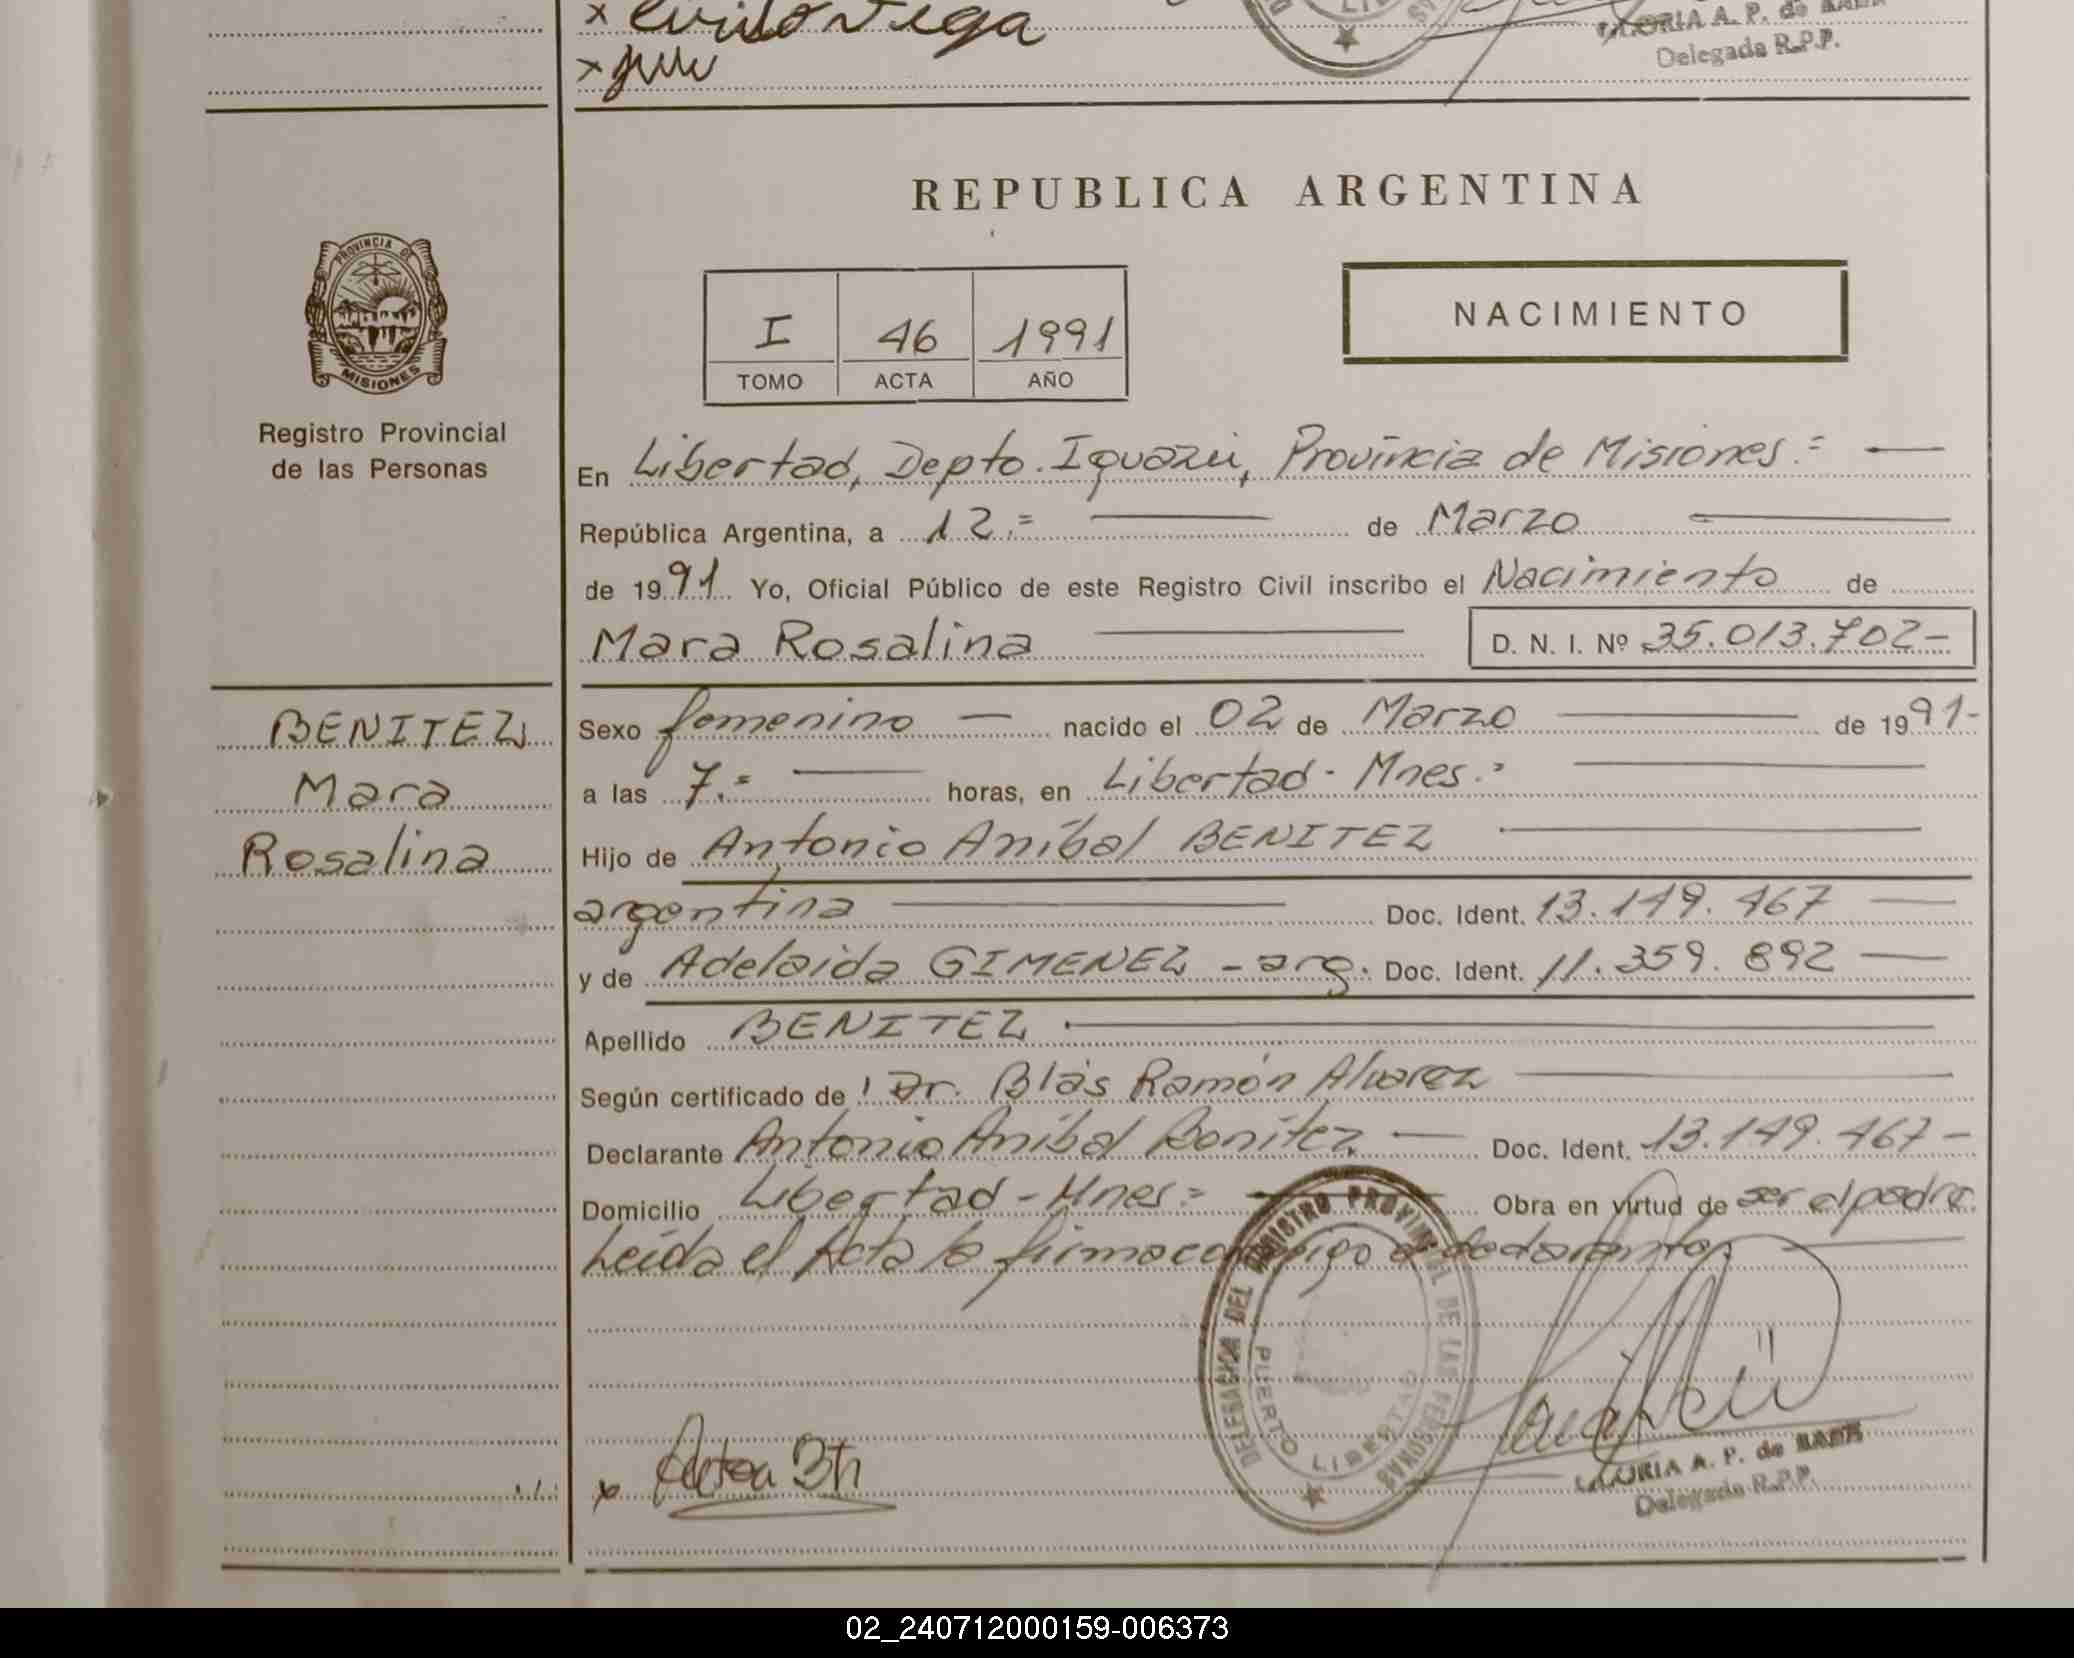 x
x
GLORIA A. P. de BAEZ
Delegada R.P.P.
REPUBLICA ARGENTINA
PROVINCIA DE
MISIONES
Registro Provincial
de las Personas
I 46 1991
TOMO ACTA AÑO
NACIMIENTO
En Libertad, Depto. Iguazú, Provincia de Misiones.=
República Argentina, a 12.= de Marzo
de 1991. Yo, Oficial Público de este Registro Civil inscribo el Nacimiento de
Mara Rosalina D. N. I. Nº 35.013.702-
BENITEZ
Mara
Rosalina
Sexo femenino nacido el 02 de Marzo de 1991-
a las 7.= horas, en Libertad - Mnes.=
Hijo de Antonio Aníbal BENITEZ
argentina Doc. Ident. 13.149.467
y de Adelaida GIMENEZ - arg. Doc. Ident. 11.359.892
Apellido BENITEZ
Según certificado de Dr. Blás Ramón Alvarez
Declarante Antonio Aníbal Benítez Doc. Ident. 13.149.467-
Domicilio Libertad - Mnes.= Obra en virtud de ser el padre.
Leída el Acta la firma conmigo el declarante.
DELEGACION DEL REGISTRO PROVINCIAL DE LAS PERSONAS
PUERTO LIBERTAD
x
GLORIA A. P. de BAEZ
Delegada R.P.P.
02_240712000159-006373